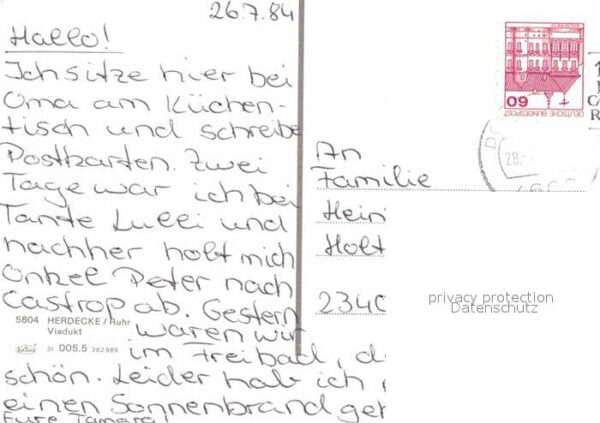 26.7.84
Hallo!
Ich sitze hier bei
Oma am Küchen-
tisch und schreibe
Postkarten. Zwei
Tage war ich bei
Tante Lulli und
nachher holt mich
Onkel Peter nach
Castrop ab. Gestern
waren wir
im Freibad, d
schön. Leider hab ich
einen Sonnenbrand get
Eure Tamara!
5804 HERDECKE / Ruhr
Viadukt
31 005.5 262989
An
Familie
Hein
Holt
2340
60
DEUTSCHE BUNDESPOST
28.
privacy protection
Datenschutz